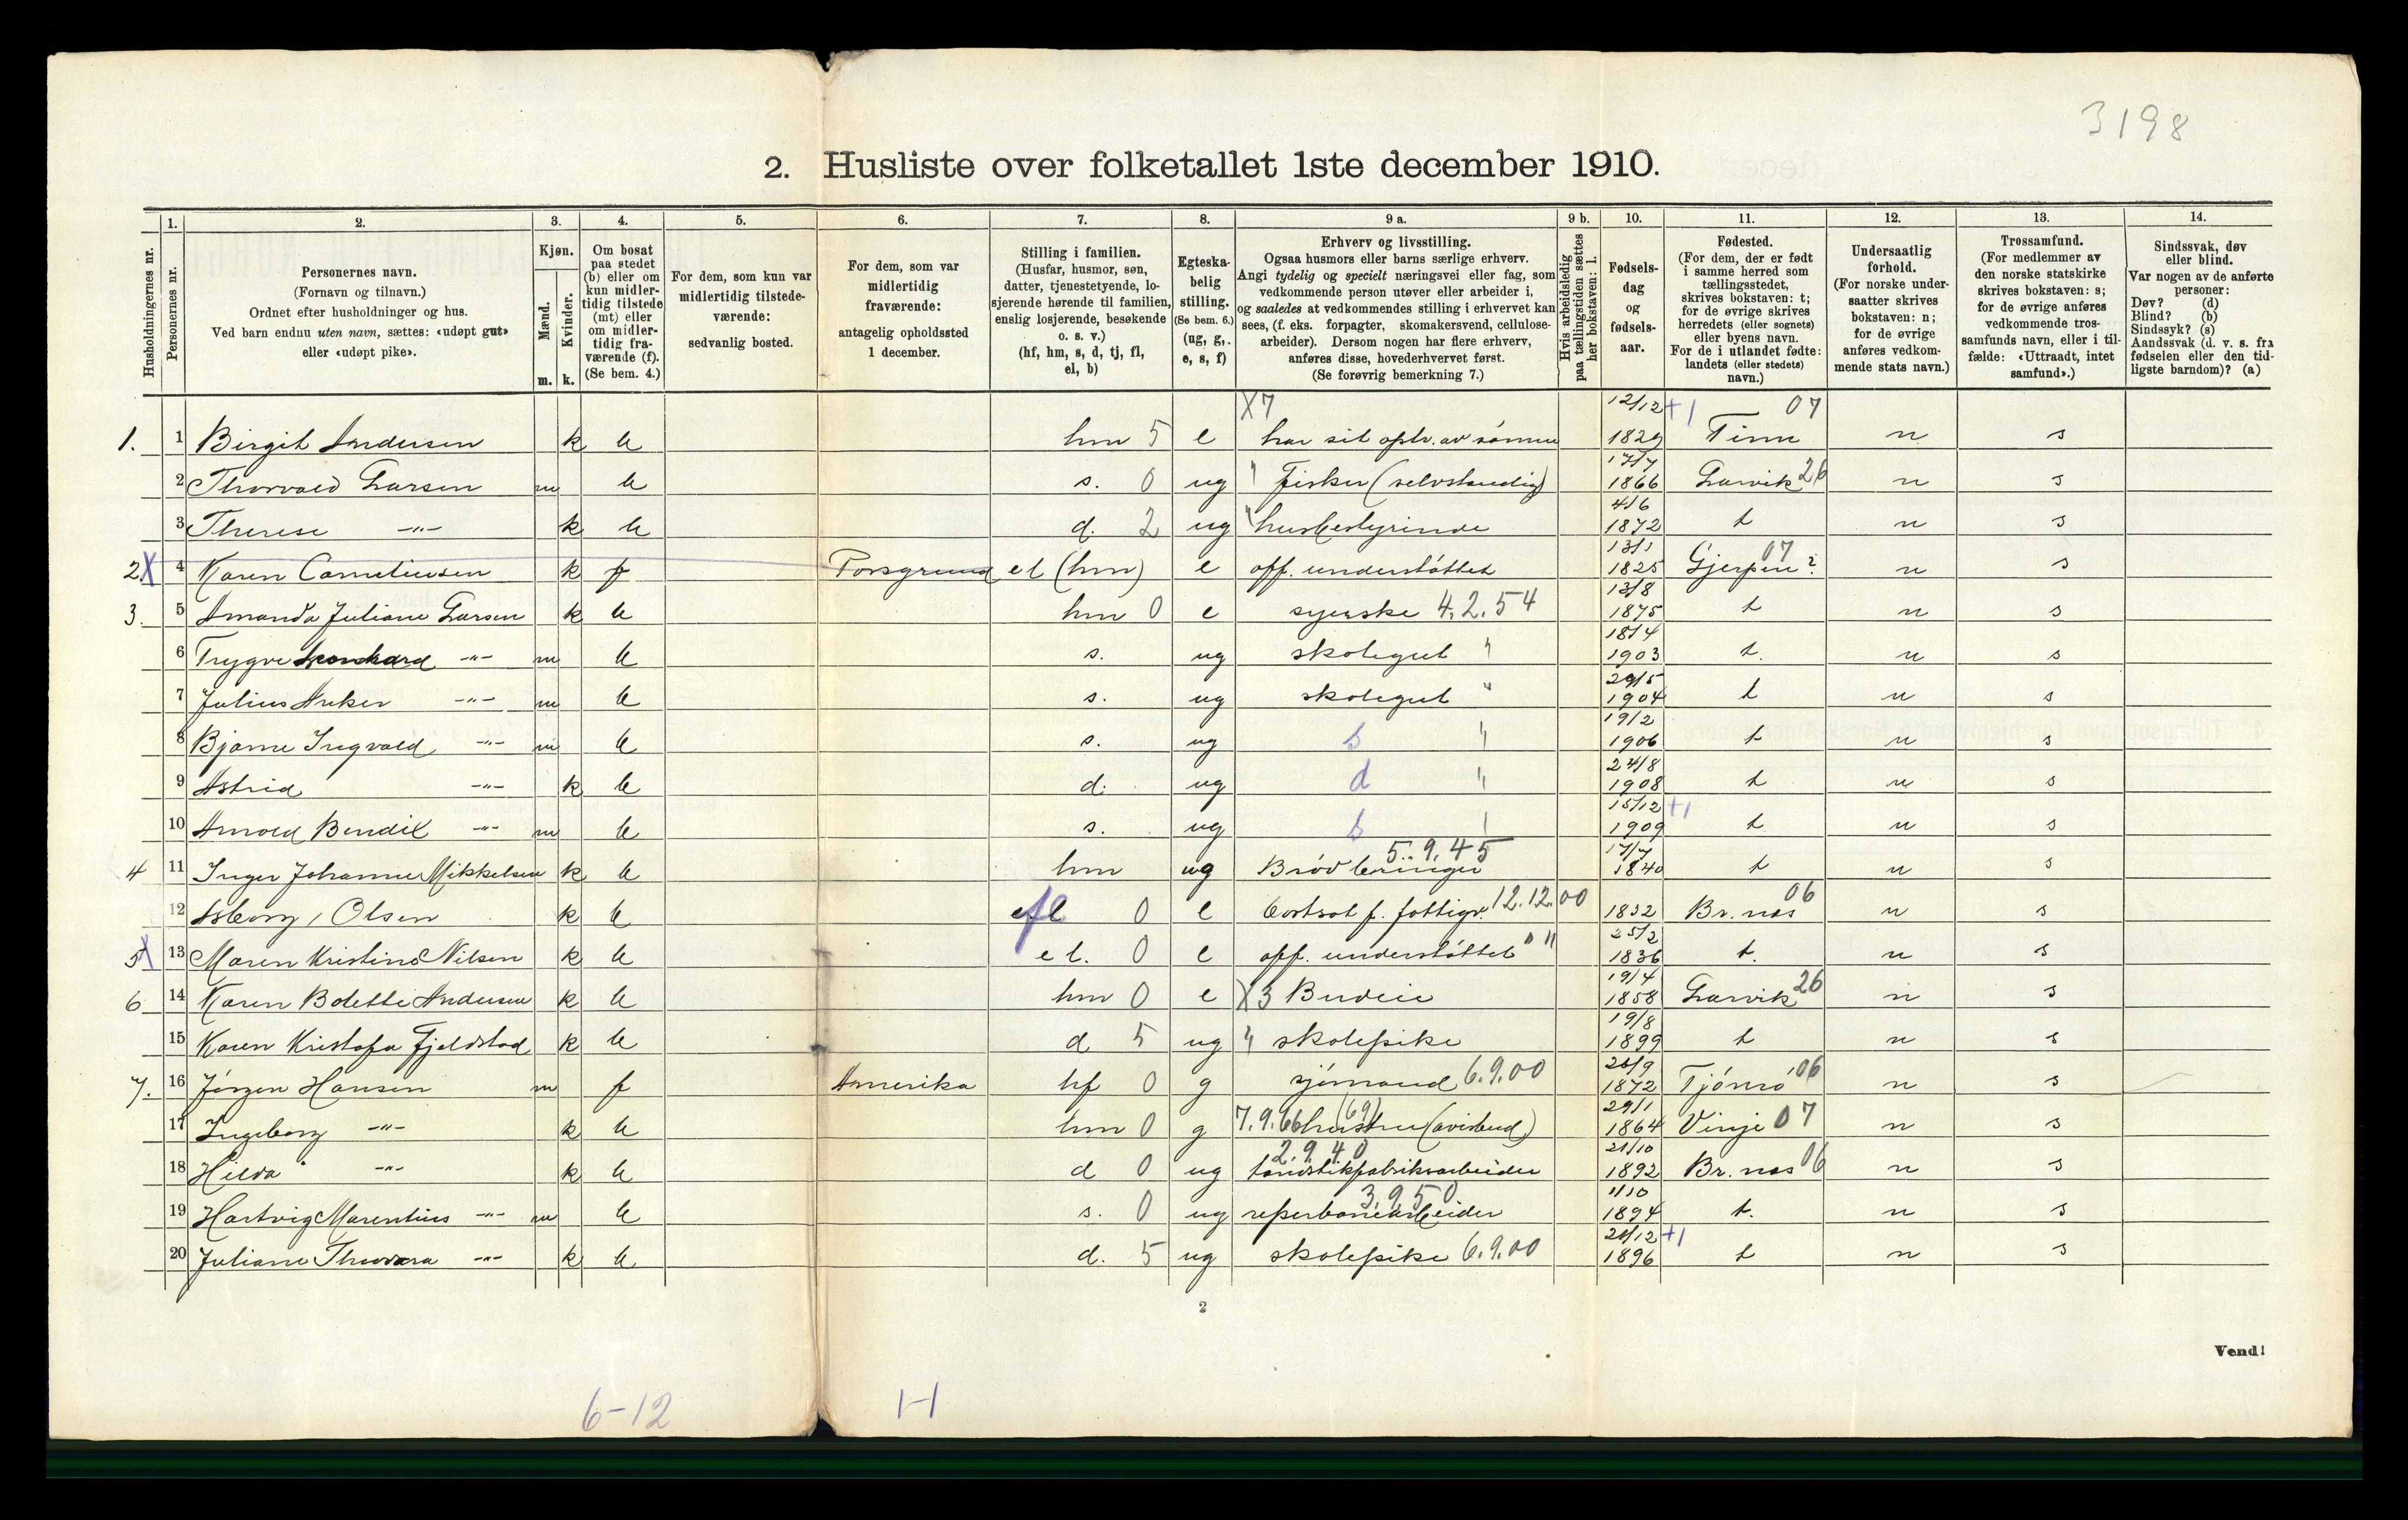 3198
2. Husliste over folketallet 1ste december 1910.
Husholdningernes nr.
1. Personernes nr.
2. Personernes navn.
(Fornavn og tilnavn.)
Ordnet efter husholdninger og hus.
Ved barn endnu uten navn, sættes: «udøpt gut»
eller «udøpt pike».
3. Kjøn.
Mænd. Kvinder.
m. k.
4. Om bosat
paa stedet
(b) eller om
kun midler-
tidig tilstede
(mt) eller
om midler-
tidig fra-
værende (f).
(Se bem. 4.)
5. For dem, som kun var
midlertidig tilstede-
værende:
sedvanlig bosted.
6. For dem, som var
midlertidig
fraværende:
antagelig opholdssted
1 december.
7. Stilling i familien.
(Husfar, husmor, søn,
datter, tjenestetyende, lo-
sjerende hørende til familien,
enslig losjerende, besøkende
o. s. v.)
(hf, hm, s, d, tj, fl,
el, b)
8. Egteska-
belig
stilling.
(Se bem. 6.)
(ug, g,
e, s, f)
9 a. Erhverv og livsstilling.
Ogsaa husmors eller barns særlige erhverv.
Angi tydelig og specielt næringsvei eller fag, som
vedkommende person utøver eller arbeider i,
og saaledes at vedkommendes stilling i erhvervet kan
sees, (f. eks. forpagter, skomakersvend, cellulose-
arbeider). Dersom nogen har flere erhverv,
anføres disse, hovederhvervet først.
(Se forøvrig bemerkning 7.)
9 b. Hvis arbeidsledig
paa tællingstiden sættes
her bokstaven: l.
10. Fødsels-
dag
og
fødsels-
aar.
11. Fødested.
(For dem, der er født
i samme herred som
tællingsstedet,
skrives bokstaven: t;
for de øvrige skrives
herredets (eller sognets)
eller byens navn.
For de i utlandet fødte:
landets (eller stedets)
navn.)
12. Undersaatlig
forhold.
(For norske under-
saatter skrives
bokstaven: n;
for de øvrige
anføres vedkom-
mende stats navn.)
13. Trossamfund.
(For medlemmer av
den norske statskirke
skrives bokstaven: s;
for de øvrige anføres
vedkommende tros-
samfunds navn, eller i til-
fælde: «Uttraadt, intet
samfund».)
14. Sindssvak, døv
eller blind.
Var nogen av de anførte
personer:
Døv? (d)
Blind? (b)
Sindssyk? (s)
Aandssvak (d. v. s. fra
fødselen eller den tid-
ligste barndom)? (a)
X7 12/12 +1 07
1. 1 Birgit Andersen k b hm 5 e har sit oph. av sønnen 1829 Tinn n s
2 Thorvald Larsen m b s. 0 ug " Fisker (selvstændig) 17/7 1866 Larvik 26 n s
3 Therese -"- k b d. 2 ug " husbestyrinde 4/6 1872 t n s
2 X 4 Karen Corneliussen k f Porsgrund el (hm) e off. understøttet 13/1 1825 Gjerpen? 07 n s
3. 5 Amanda Juliane Larsen k b hm 0 e syerske 4.2.54 13/8 1875 t n s
6 Trygve -"- m b s. ug skolegut " 18/4 1903 t. n s
7 Julius Anker -"- m b s. ug skolegut " 29/5 1904 t n s
8 Bjarne Ingvald -"- m b s. ug s " 19/2 1906 t n s
9 Astrid -"- k b d. ug d " 24/8 1908 t n s
10 Arnold Bendik -"- m b s. ug s " 15/12 +1 1909 t n s
4 11 Inger Johanne Mikkelsen k b hm ug Brødbringer 5.9.45 17/7 1840 t n s
12 Asborg Olsen k b fl 0 e bortsat f. fattigv. 12.12.00 1832 Br.nes 06 n s
5 X 13 Maren Kristine Nilsen k b el. 0 e off. understøttet " " 25/2 1836 t. n s
6 14 Karen Bolette Andersen k b hm 0 e X3 Budeie 19/4 1858 Larvik 26 n s
15 Karen Kristofa Fjeldstad k b d 5 ug " skolepike 19/8 1899 t n s
7. 16 Jørgen Hansen m f Amerika hf 0 g sjømand 6.9.00 1872 Tjømø 06 n s
17 Ingeborg -"- k b hm 0 g 7.9.66 (69) hustru (avisbud) 29/1 1864 Vinje 07 n s
18 Hilda -"- k b d 0 ug 2.9.40 tændstikfabrikarbeider 21/10 1892 Br.nes 06 n s
19 Hartvig Marentius -"- m b s. 0 ug reperbanearbeider 3.9.50 1/10 1894 t. n s
20 Juliane -"- k b d. 5 ug skolepike 6.9.00 +1 1896 t n s
2
Vend!
6-12 H